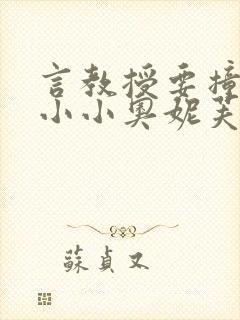 言教授要撞
小小奧妮芙
蘇貞又